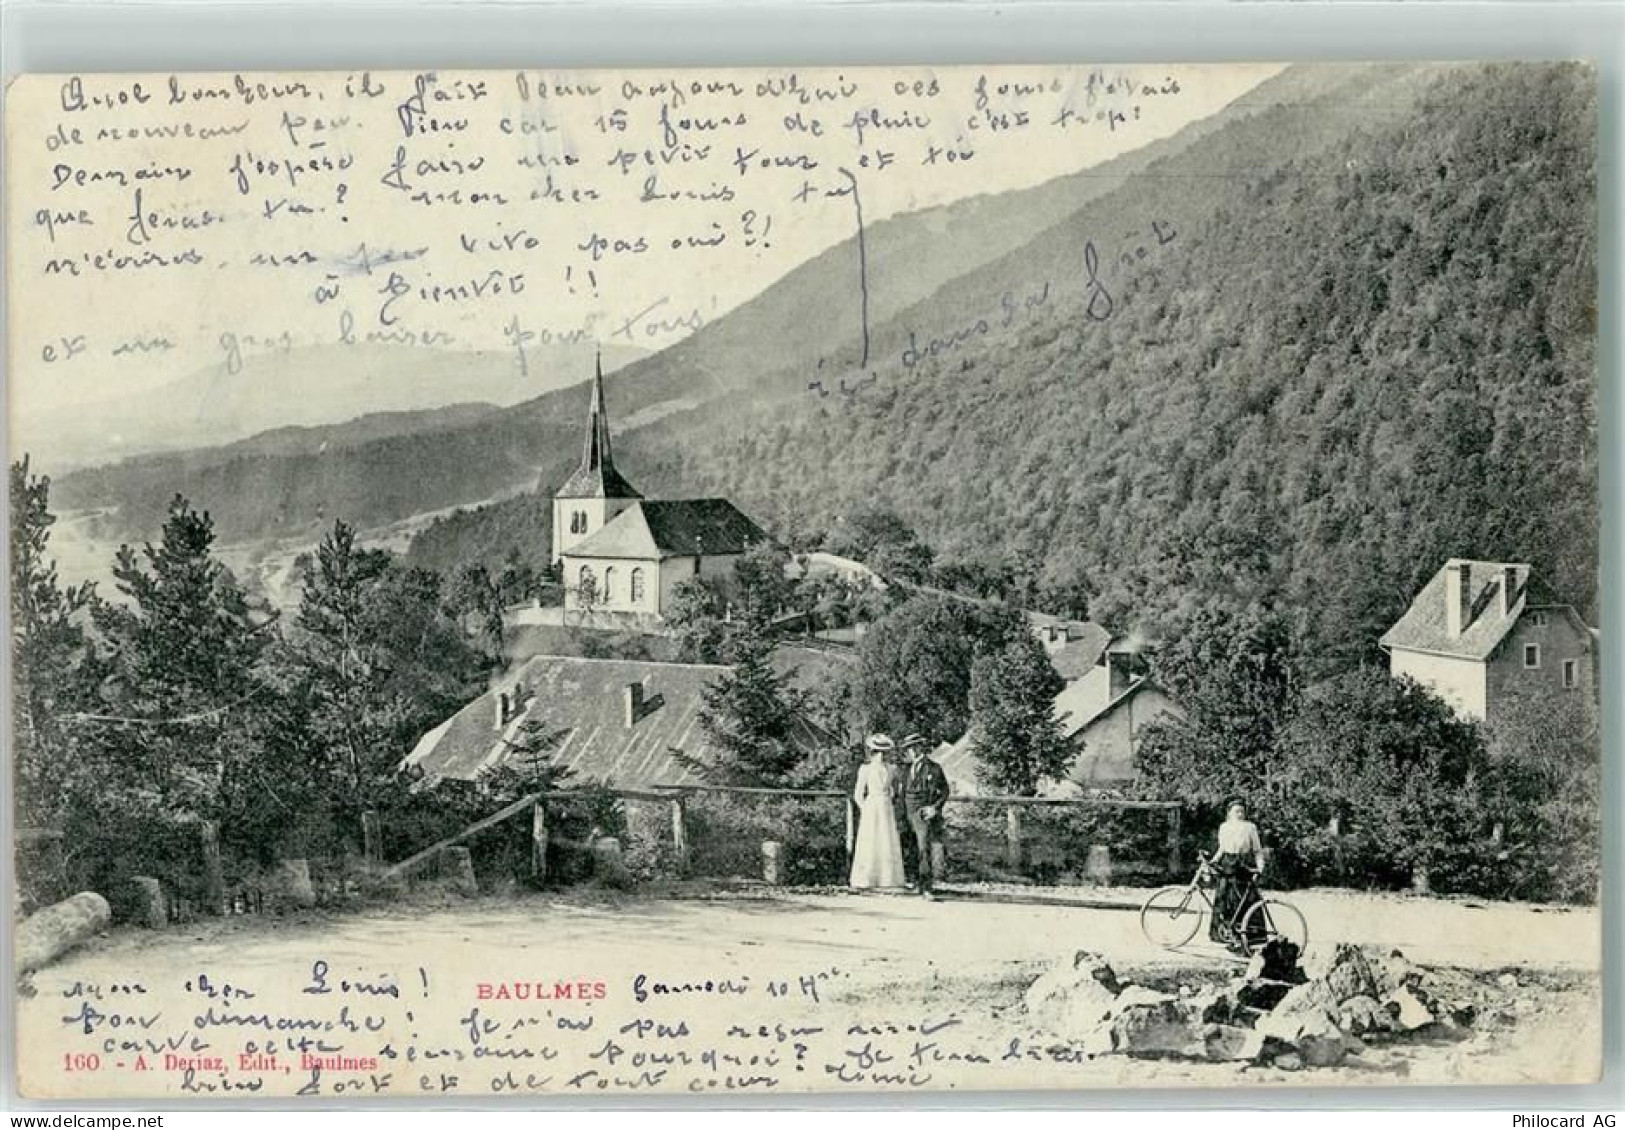 Quel bonheur, il fait beau aujourd'hui ces jours j'avais
de nouveau peu. Bien car 15 jours de pluie c'est trop!
Demain j'espère faire un petit tour et toi
que feras-tu? mon cher Louis tu
m'écriras un peu vite pas oui?!
à Bientôt!!
et un gros baiser pour tous!
ici dans la forêt
mon cher Louis! BAULMES Samedi 10 Hre.
Bon dimanche! Je n'ai pas reçu une
carte cette semaine pourquoi? Je t'embrasse
160 - A. Deriaz, Edit., Baulmes
bien fort et de tout coeur
Philocard AG